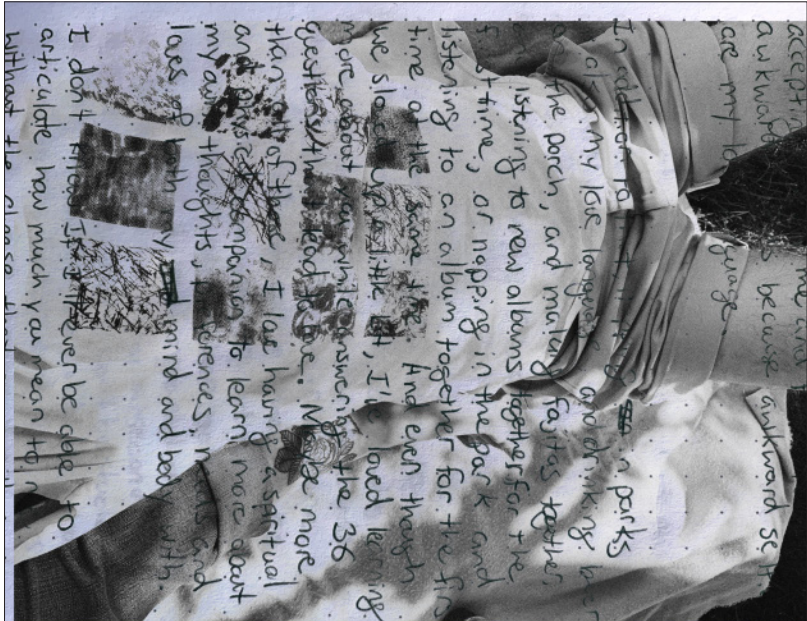 accepting
awkward because awkward self
are my lo guage
In addition to in parks
my love language and drinking beer
the porch, and making fajitas together,
listening to new albums together for the
time, or napping in the park and
listening to an album together for the firs
time at the same time. And even though
we slowed up a little bit, I've loved learning
more about you while answering the 36
questions that lead to love. Maybe more
than all of these, I love having a spiritual
and physical companion to learn more about
my own thoughts, preferences, and
loves of both my mind and body with.
I don't know if I'll ever be able to
articulate how much you mean to
without the cheese